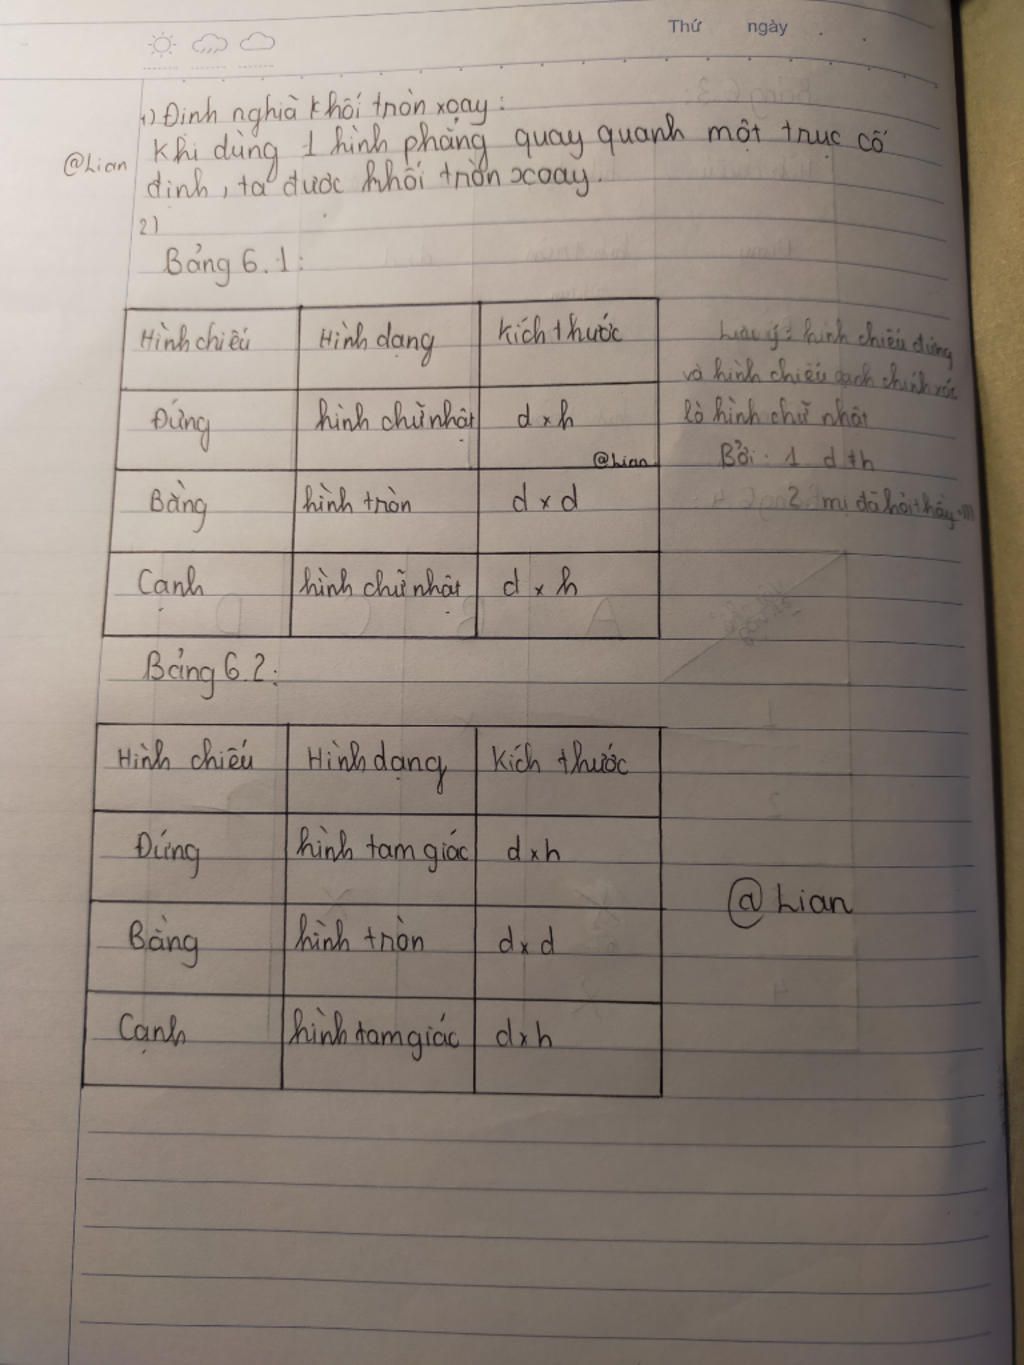 Thứ ngày
1) Định nghĩa khối tròn xoay:
@Lian
Khi dùng 1 hình phẳng quay quanh một trục cố
định, ta được khối tròn xoay.
2)
Bảng 6.1:
Hình chiếu Hình dạng Kích thước
Đứng hình chữ nhật d x h
@Lian
Bằng hình tròn d x d
Cạnh hình chữ nhật d x h
Lưu ý: hình chiếu đứng
và hình chiếu cạnh chính xác
là hình chữ nhật
Bởi: 1 d + h
2 mị đã hỏi thầy
Bảng 6.2:
Hình chiếu Hình dạng Kích thước
Đứng hình tam giác d x h
Bằng hình tròn d x d
Cạnh hình tam giác d x h
@Lian